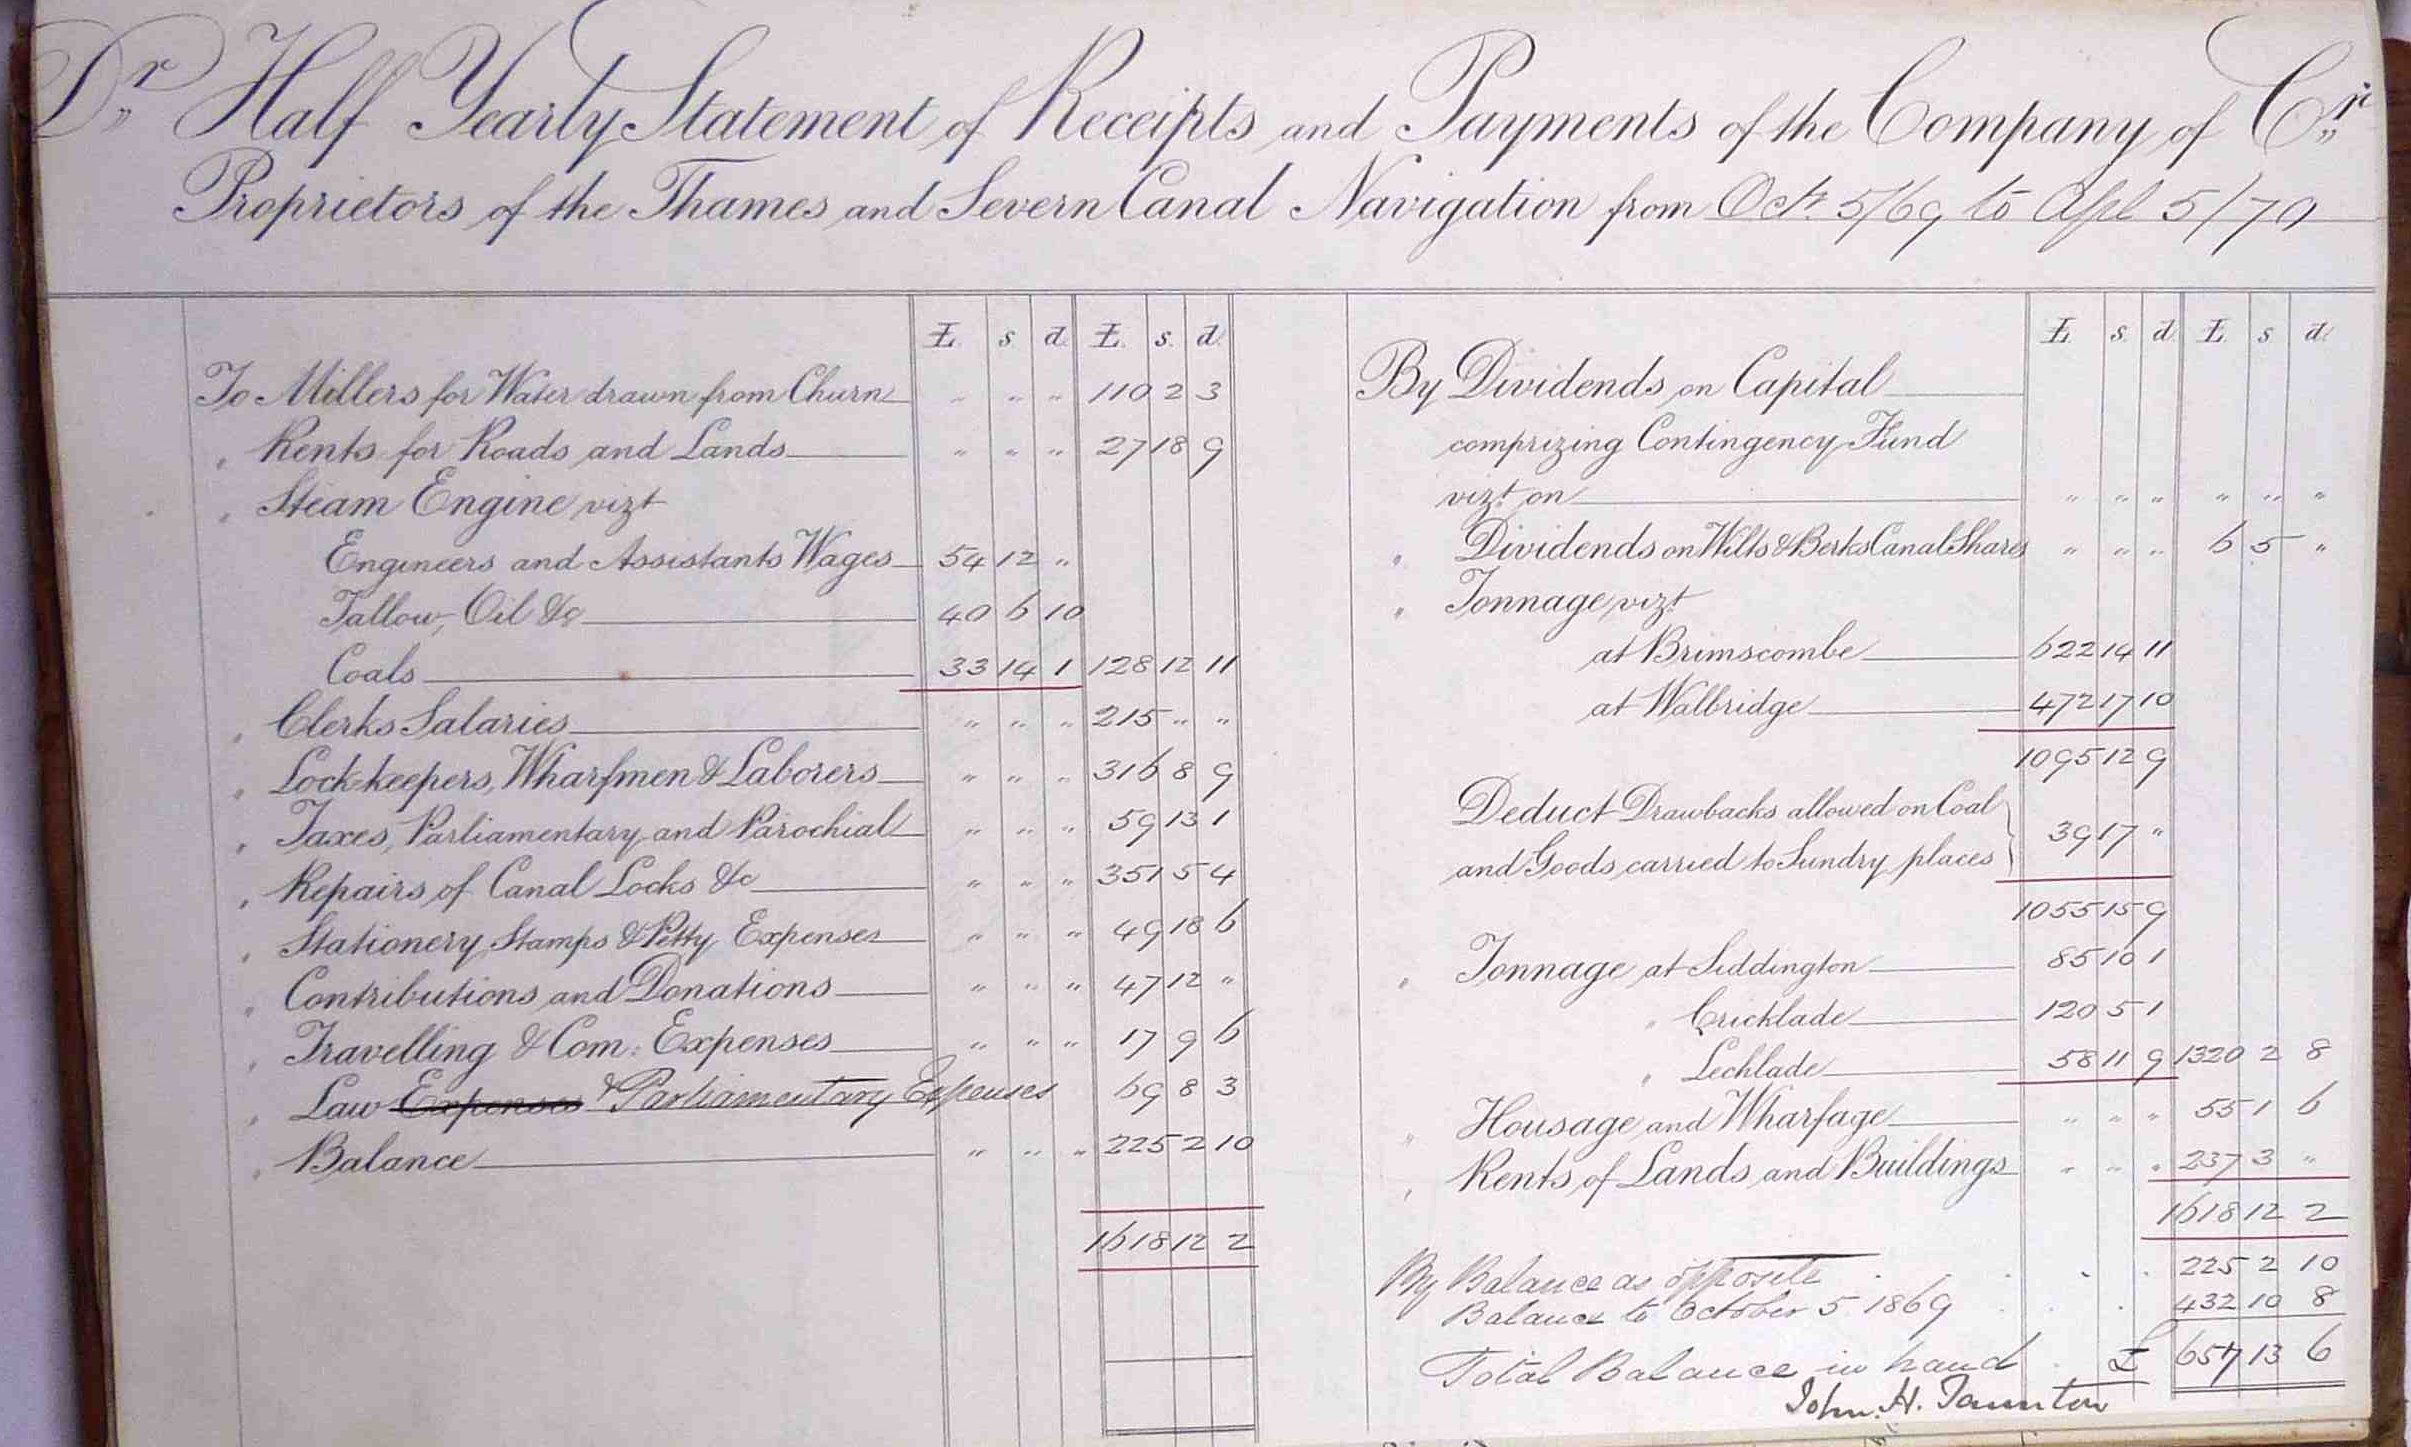 Dr Half Yearly Statement of Receipts and Payments of the Company of Cr
Proprietors of the Thames and Severn Canal Navigation from Octr. 5/69 to Apl 5/70
£ s d £ s. d.
To Millers for Water drawn from Churn " " " 110 2 3
" Rents for Roads and Lands " " " 27 18 9
" Steam Engine vizt
Engineers and Assistants Wages 54 12 "
Tallow, Oil &c 40 6 10
Coals 33 14 1 128 12 11
" Clerks Salaries " " " 215 " "
" Lock-keepers, Wharfmen & Laborers " " " 316 8 9
" Taxes, Parliamentary and Parochial " " " 59 13 1
" Repairs of Canal Locks &c " " " 351 5 4
" Stationery, Stamps & Petty Expenses " " " 49 18 6
" Contributions and Donations " " " 47 12 "
" Travelling & Com: Expenses " " " 17 9 6
" Law Expenses & Parliamentary Expenses 69 8 3
" Balance " " " 225 2 10
1618 12 2
£ s. d £. s d.
By Dividends on Capital
comprizing Contingency Fund
vizt. on " " " " " "
" Dividends on Wilts & Berks Canal Shares " " " 6 5 "
" Tonnage vizt
at Brimscombe 622 14 11
at Walbridge 472 17 10
1095 12 9
Deduct Drawbacks allowed on Coal
and Goods carried to Sundry places 39 17 "
1055 15 9
" Tonnage at Siddington 85 10 1
" Cricklade 120 5 1
" Lechlade 58 11 9 1320 2 8
" Housage and Wharfage " " " 55 1 6
" Rents of Lands and Buildings " " " 237 3 "
1618 12 2
By Balance as opposite 225 2 10
Balance to October 5 1869 432 10 8
Total Balance in hand £ 657 13 6
John. H. Taunton